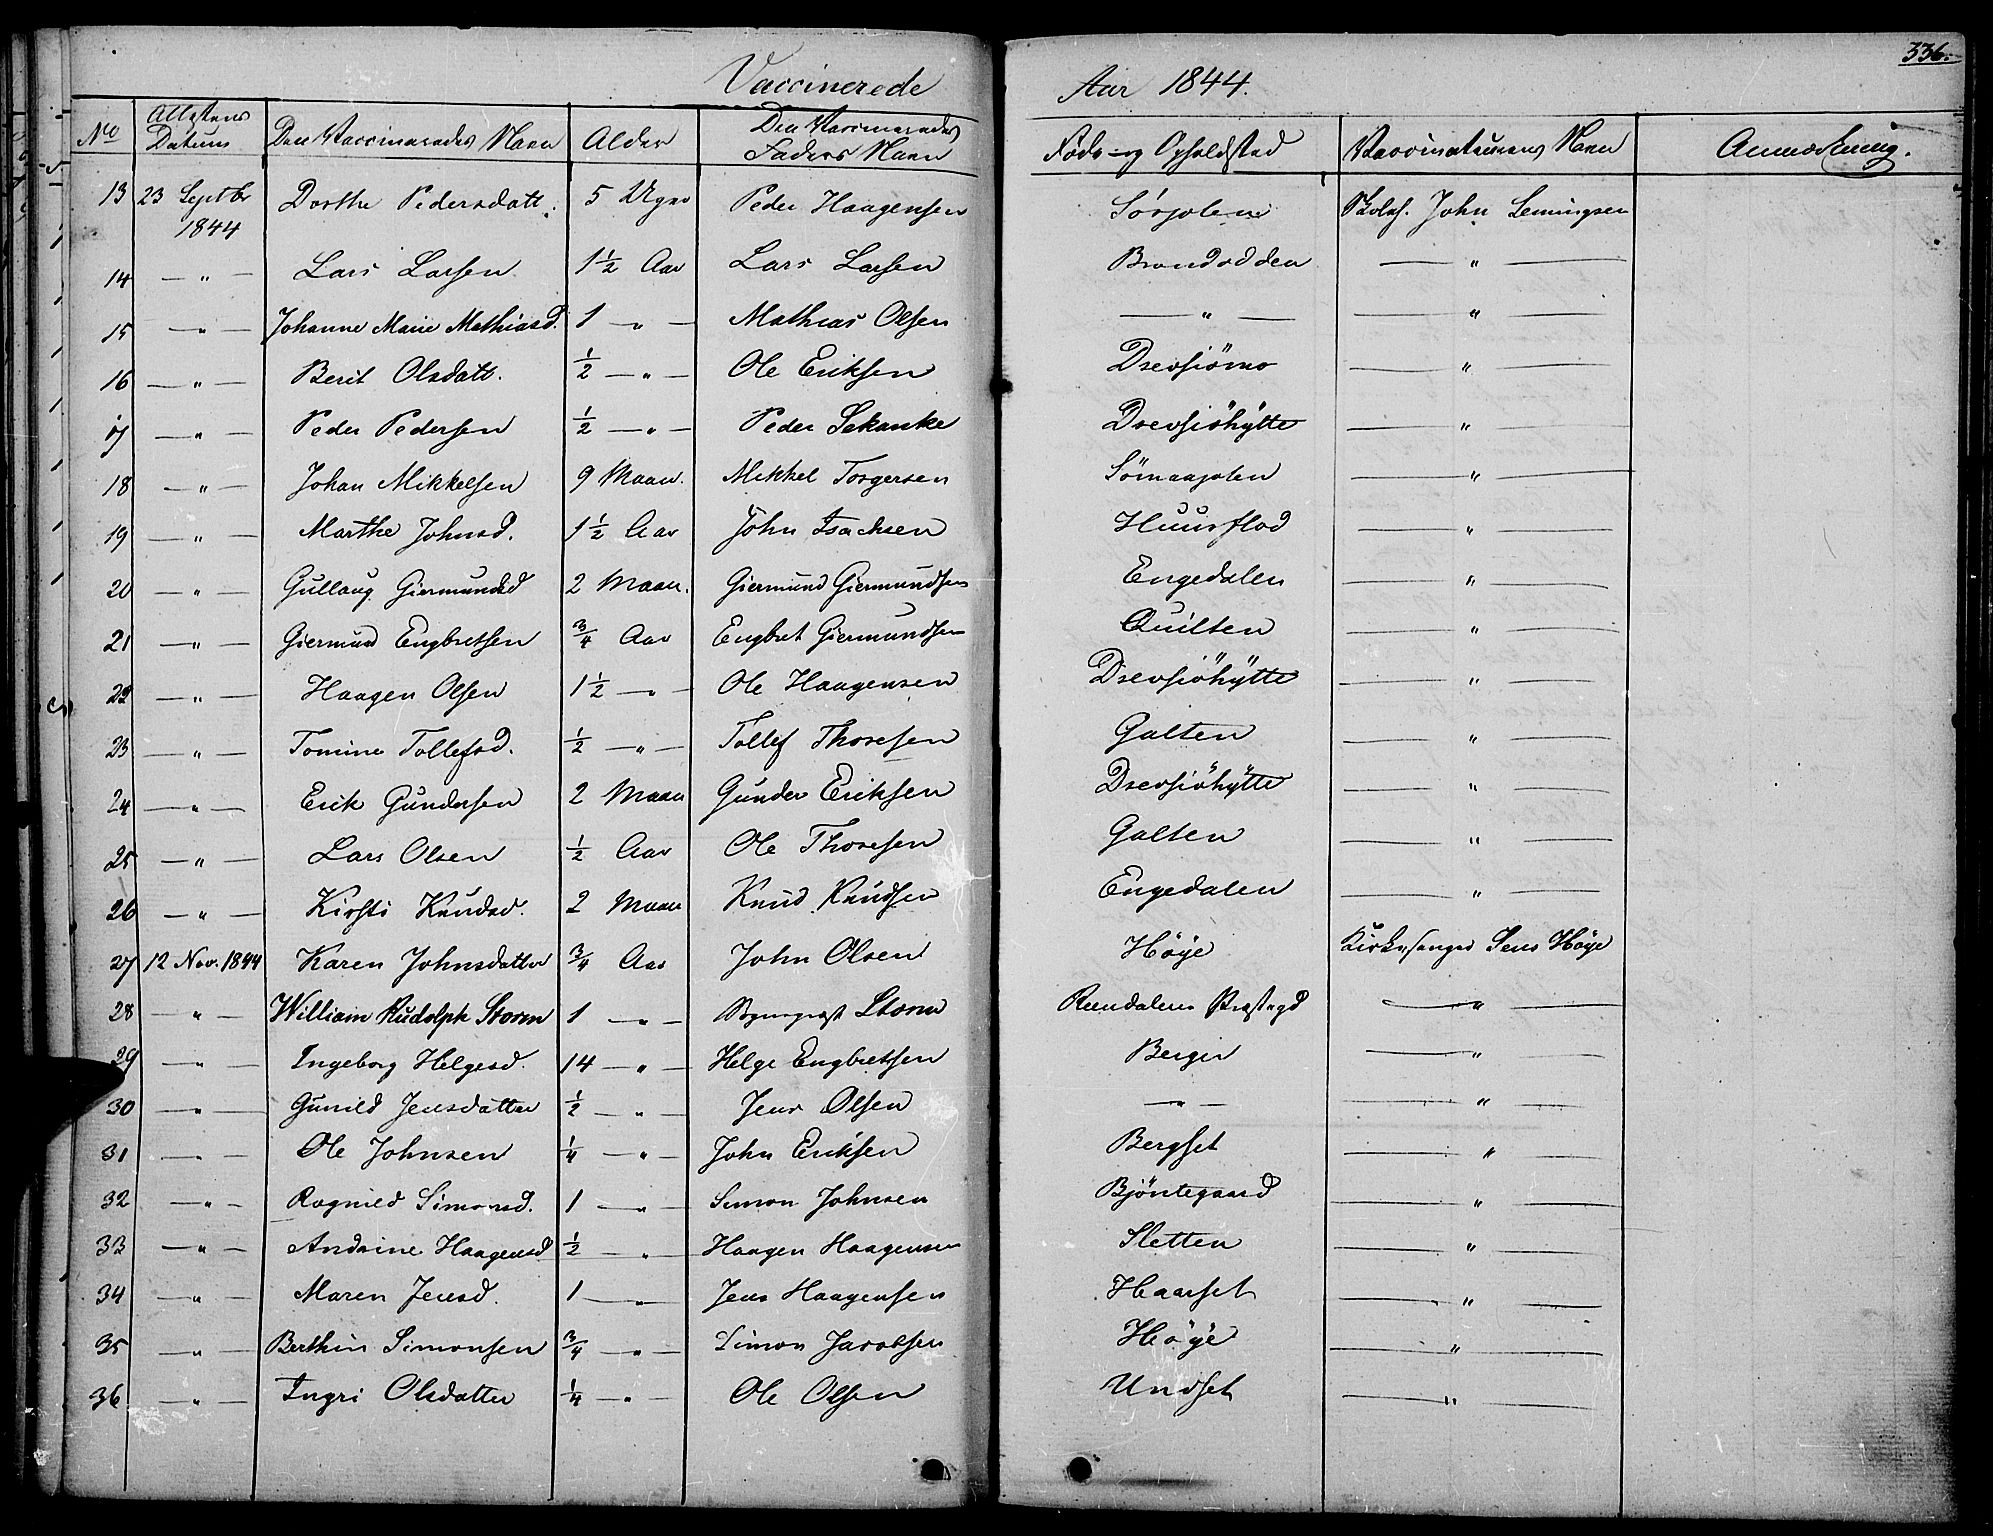 336.
Vaccinerede Aar 1844.
No Attestens Datum Den Vaccineredes Navn Alder Den Vaccineredes Faders Navn Føde- og Opholdsted Vaccinateurens Navn Anmærkning.
13 23 Septbr 1844 Dorthe Pedersdatt. 5 Uger Peder Haagensen Sørjolen John Lemingsen
14 — " — Lars Larsen. 1 1/2 Aar Lars Larsen Brandodden — " —
15 — " — Johanne Marie Mathiasd. 1 — " — Mathias Olsen — " — — " —
16 — " — Berit Olsdatt. 1/2 — " — Ole Eriksen Drevsiömo — " —
17 — " — Peder Pedersen 1/2 — " — Peder Sekanke Drevsiöhÿtte — " —
18 — " — Johan Mikkelsen 9 Maan. Mikkel Torgersen Sömaajolen — " —
19 — " — Marthe Johnsd. 1 1/2 Aar John Isachsen Huurflod — " —
20 — " — Gullaug Giermundsd 2 Maan. Giermund Giermundsen Engedalen — " —
21 — " — Giermund Engbretsen 3/4 Aar Engbret Giermundsen Quilten — " —
22 — " — Haagen Olsen 1 1/2 — " — Ole Haagensen Drevsiöhÿtte — " —
23 — " — Tomine Tollefsd. 1/2 — " — Tollef Thoresen Galten — " —
24 — " — Erik Gundersen 2 Maan Gunder Eriksen Drevsiöhÿtte — " —
25 — " — Lars Olsen 1/2 Aar Ole Thoresen Galten — " —
26 — " — Kirsti Knudsd. 2 Maan Knud Knudsen Engedalen — " —
27 12 Nov. 1844 Karen Johnsdatter 3/4 Aar John Olsen Høÿe Kirkesanger Jens Høÿe
28 — " — William Rudolph Storm 1 — " — Storm Rendalens Præstegd — " —
29 — " — Ingeborg Helgesd. 14 — " — Helge Engbretsen Berger — " —
30 — " — Gunild Jensdatter 1/2 — " — Jens Olsen — " — — " —
31 — " — Ole Johnsen 1/4 — " — John Eriksen Bergset — " —
32 — " — Ragnild Simonsd. 1 — " — Simon Johnsen Bjöntegaard — " —
33 — " — Andrine Haagensd 1/2 — " — Haagen Haagensen Sletten — " —
34 — " — Maren Jensd. 1 — " — Jens Haagensen Haarset — " —
35 — " — Berthin Simonsen 3/4 — " — Simon Jacobsen Høÿe — " —
36 — " — Ingri Olsdatter 1/4 — " — Ole Olsen Undset — " —